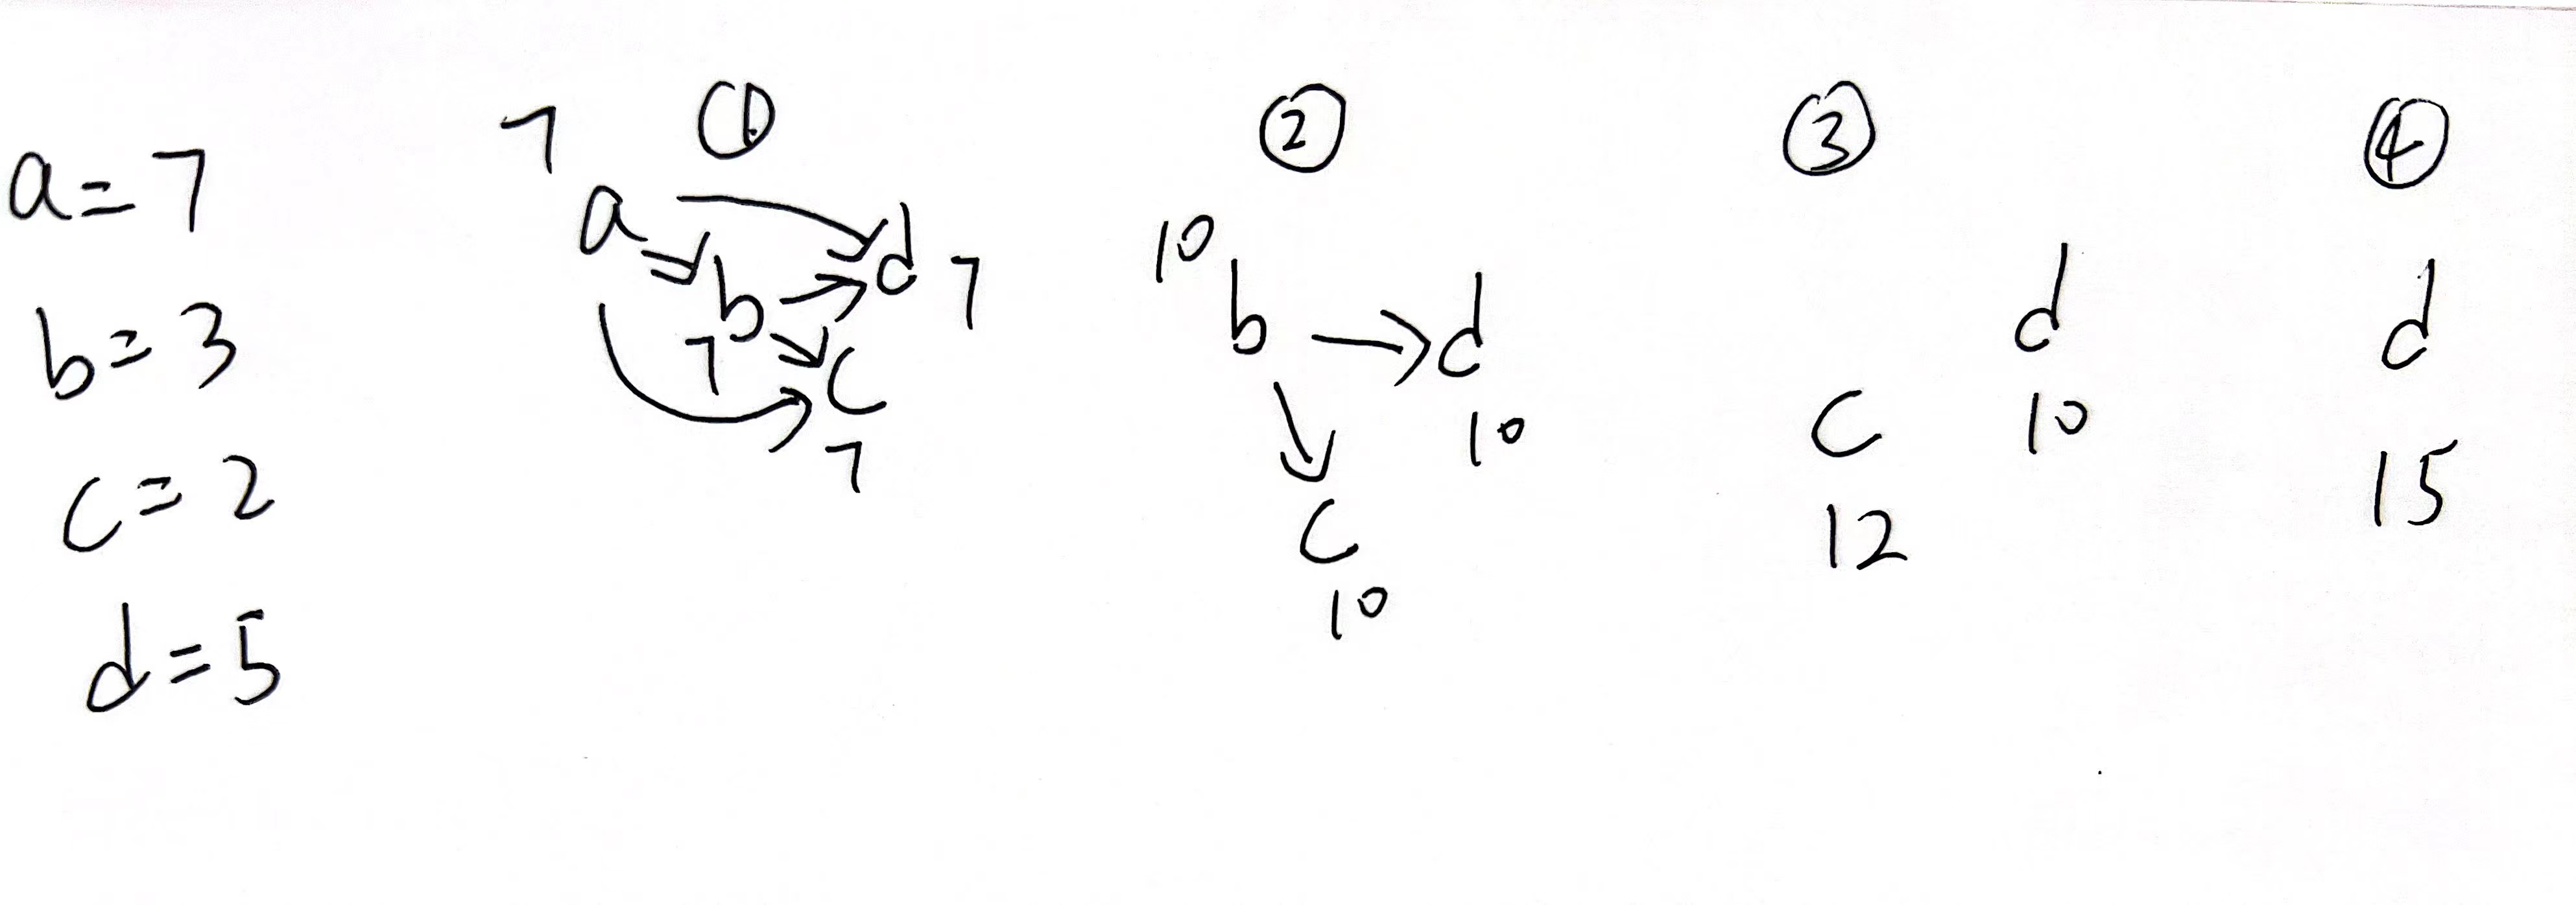 a=7
b=3
c=2
d=5
①
7
a
d 7
b
7
c
7
②
10
b
d
10
c
10
③
d
10
c
12
④
d
15